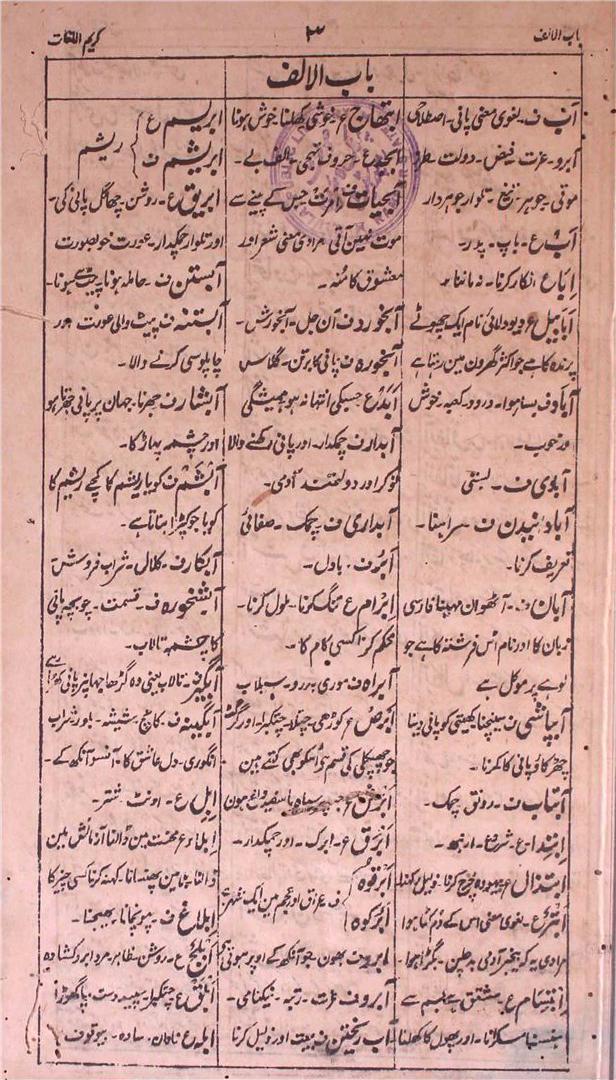 باب الالف
۳
کریم اللغات
باب الالف
آب ف۔ لغوی معنی پانی۔ اصطلاحی
آبرو۔ عزت۔ فیض۔ دولت۔ طرز
موتی۔ جوہر۔ تیغ۔ تلوار جوہردار
آب ع۔ باپ۔ پدر۔
اِباع انکار کرنا۔ نہ ماننا۔
ابابیل ع نام ایک چھوٹے
پرندہ کا ہے جو اکثر گھرون مین رہتا ہے
آباد ف بسا ہوا۔ درود۔ کعبہ۔ خوش
اور خوب۔
آبادی ف۔ بستی
آبادانیدن ف سراہنا۔
تعریف کرنا۔
آبان ف۔ آٹھوان مہینا فارسی
زبان کا اور نام اس فرشتہ کا ہے جو
لوہے پر موکل ہے
آبپاشی ف سینچنا کھیتی کو پانی دینا
چھڑکاؤ پانی کا کرنا۔
آبتاب ف۔ رونق۔ چمک۔
اِبتدا ع شروع۔
اِبتذال ع بیہودہ خرچ کرنا۔
اَبتر ع۔ لغوی معنی اس کے دُم کٹا ہوا
مرادی آدمی بدچلن۔ بگڑا ہوا۔
اِبتسام ع مشتق ہے بسم سے
ہنسنا مسکرانا۔ اور پھول کا کھلنا
ابتہاج ع۔ خوشی۔ کھلنا۔ خوش ہونا
ابجد ع۔ حروف تہجی۔ الف بے۔
آبحیات ف امرت جس کے پینے سے
موت نہین آتی مرادی معنی شعر اور
معشوق کا منہ۔
آبخورد ف آن جل۔ آبخورش۔
آبخورہ ف پانی کا برتن۔ گلاس
اَبَد ع جسکی انتہا نہ ہو۔ ہمیشگی
آبدار ف چمکدار۔ اور پانی رکھنے والا
نوکر اور دولتمند آدمی۔
آبداری ف۔ چمک۔ صفائی
اَبر ف۔ بادل۔
اِبرام ع تنگ کرنا۔ ملول کرنا۔
محکم کرنا کسی کام کا۔
آبراہ ف موری۔ بدررو۔ سیلاب
اَبرص ع کوڑھی۔ چتکبرا۔ اور گرگٹ
جو چھپکلی کی قسم ہے اسکو بھی کہتے ہین
اَبرش ع جسپر سیاہ یا سفید داغ ہون
اَبرق ع۔ ابرک۔ اور چمکدار۔
ابرقوہ
ابرکوہ
ف عراق اور عجم مین ایک شہر ہے
ابرو ف بھون۔ جو آنکھ کے اوپر ہوتی
آبرو ف عزت۔ رتبہ۔ نیکنامی۔
آب ریختن ف بیعت اور ذلیل کرنا
ابریسم ع
ابریشم ف
ریشم
ابریق ع۔ روشن۔ چھاگل پانی کی۔
اور تلوار چمکدار۔ عورت خوبصورت
آبستن ف۔ حاملہ ہونا۔ پیٹ سے ہونا۔
آبستنہ ف پیٹ والی عورت اور
چاپلوسی کرنے والا۔
آبشار ف جھرنا۔ جہان پر پانی جھڑتا ہو
اور چشمہ پہاڑ کا۔
اَبشم ف کویا ریشم کا کچے ریشم کا
کویا جو کیڑا بناتا ہے۔
آبکار ف۔ کلال۔ شراب فروش
آبشخورہ ف۔ قسمت۔ چوبچہ پانی
کا چشمہ تالاب۔
آبگیر ف۔ تالاب یعنی وہ گڑھا جہان پر پانی کھڑا رہے
آبگینہ ف۔ کانچ۔ شیشہ۔ بلور شراب
انگوری۔ دل عاشق کا۔ آنسو آنکھ کے۔
اِبل ع۔ اونٹ۔ شتر۔
ابلاء ع محنت مین ڈالنا آزمائش مین
ڈالنا بلا مین پھنسانا۔ کہنہ کرنا کسی چیز کا
اِبلاغ ف۔ پہونچانا۔ بھیجنا۔
اَبلج ع۔ روشن۔ ظاہر۔ مرد ابرو کشادہ
اَبلق ع چتکبرا۔ سپید دست و پا گھوڑا
ابلہ ع نادان۔ سادہ۔ بیوقوف